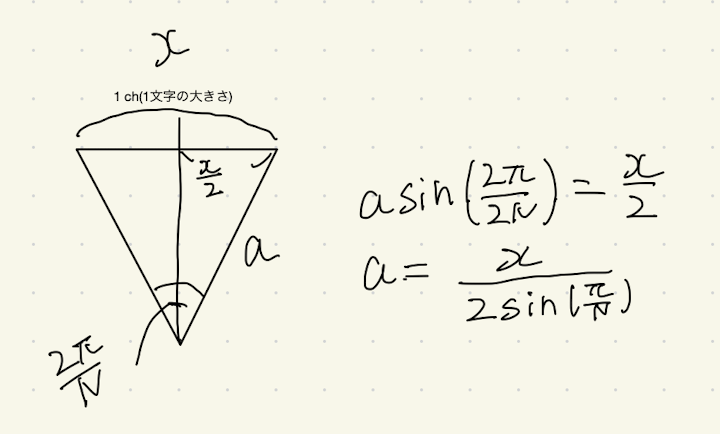 x
1 ch(1文字の大きさ)
x/2
a
2π/N
a sin(2π/2N) = x/2
a = x/2sin(π/N)